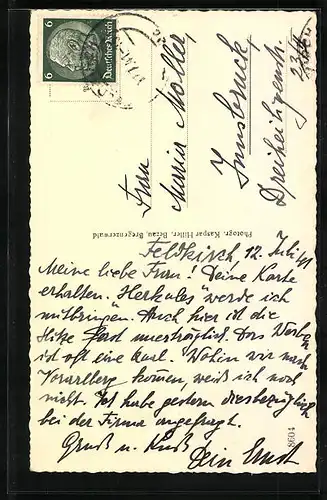 Deutsches Reich
6 6
Frau
Maria Möller,
Innsbruck,
Dreiheiligenstr.
23/II
Photogr. Kaspar Hiller, Bezau, Bregenzerwald
Feldkirch, 12. Juli 41
Meine liebe Frau! Deine Karte
erhalten. "Herkules" werde ich
mitbringen. Auch hier ist die
Hitze fast unerträglich. Das
ist oft eine Qual. Wohin wir nach
Vorarlberg kommen, weiß ich noch
nicht. Ich habe gestern diesbezüglich
bei der Firma angefragt.
Gruß u. Kuß!
Dein Ernst
8604